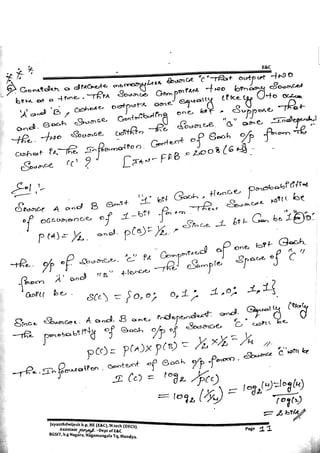 E&C
Consider a discrete memoryless Source "C" that output two
bits at a time. This Source Comprises two binary Sources
'A' and 'B', whose outputs are equally likely 0 to occur
and each Source Contributing one bit. Suppose that
the two Source within the Source "C" are Independent
what is the Information Content of each o/p from the
Source 'C' ? [JAN-FEB-2008(6M)]
Sol:-
Source A and B Emit "1" bit Each, Hence probabilities
of occurrence of 1-bit from Their Sources will be
p(A)=½ and p(B)=½, Since 1 bit Can be 1 0.
the o/p of Source "C" is Comprised of one bit Each
from 'A' and "B" Hence The Sample Space of "C"
will be. S(C) = {0,0; 0,1; 1,0; 1,1}
Since Sources A and B are independent and Equally likely
the probability of Each o/p of Source 'C' will be
p(C) = p(A) x p(B) = ½ x ½ = ¼
The Information Content of Each o/p from Source "C" will be
I(C) = log₂ 1/p(C)
= log₂ (1/¼) = log₂(4) = log(4)/log(2)
= 2 bits
Page 11